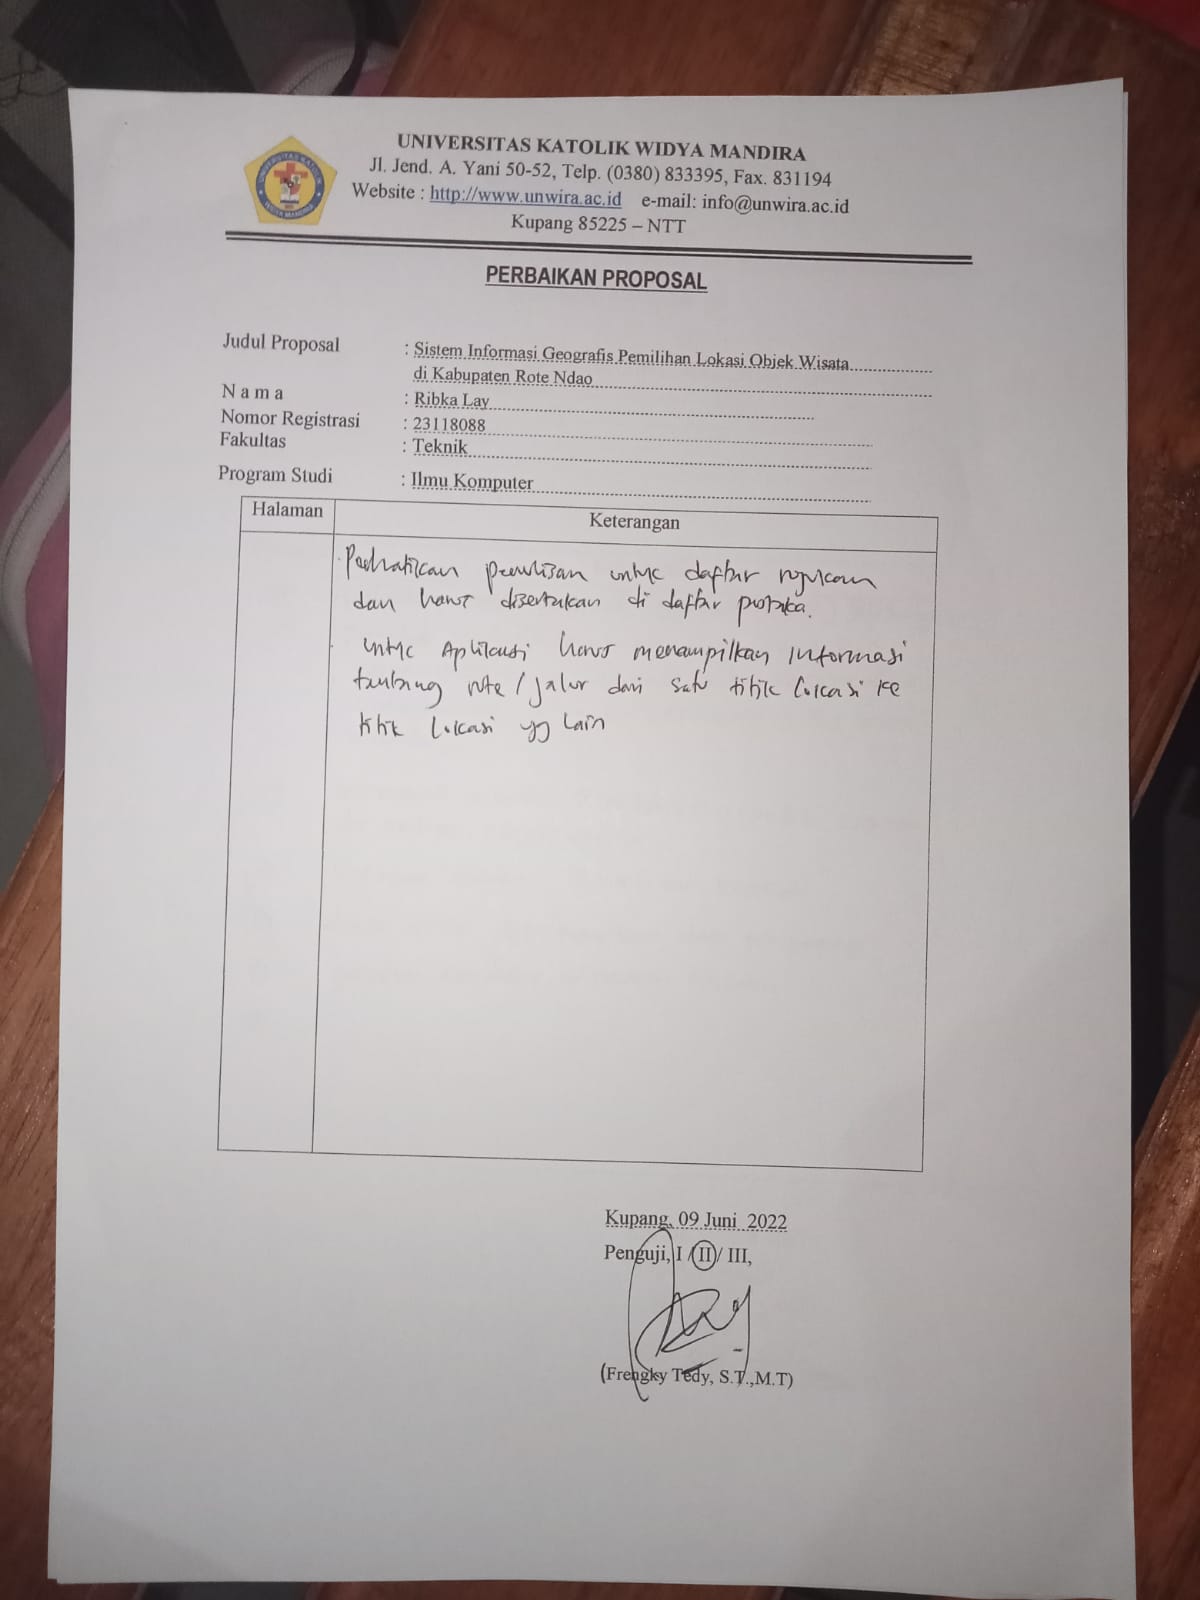 UNIVERSITAS KATOLIK WIDYA MANDIRA
Jl. Jend. A. Yani 50-52, Telp. (0380) 833395, Fax. 831194
Website : http://www.unwira.ac.id e-mail: info@unwira.ac.id
Kupang 85225 – NTT
UNIVERSITAS KATOLIK
WIDYA MANDIRA
PERBAIKAN PROPOSAL
Judul Proposal : Sistem Informasi Geografis Pemilihan Lokasi Objek Wisata
di Kabupaten Rote Ndao
N a m a : Ribka Lay
Nomor Registrasi : 23118088
Fakultas : Teknik
Program Studi : Ilmu Komputer
Halaman Keterangan
Perhatikan penulisan untuk daftar rujukan
dan harus disertakan di daftar pustaka.
untuk Aplikasi harus menampilkan informasi
tentang rute/jalur dari satu titik lokasi ke
titik lokasi yg lain
Kupang, 09 Juni 2022
Penguji, I / II / III,
(Frengky Tedy, S.T.,M.T)